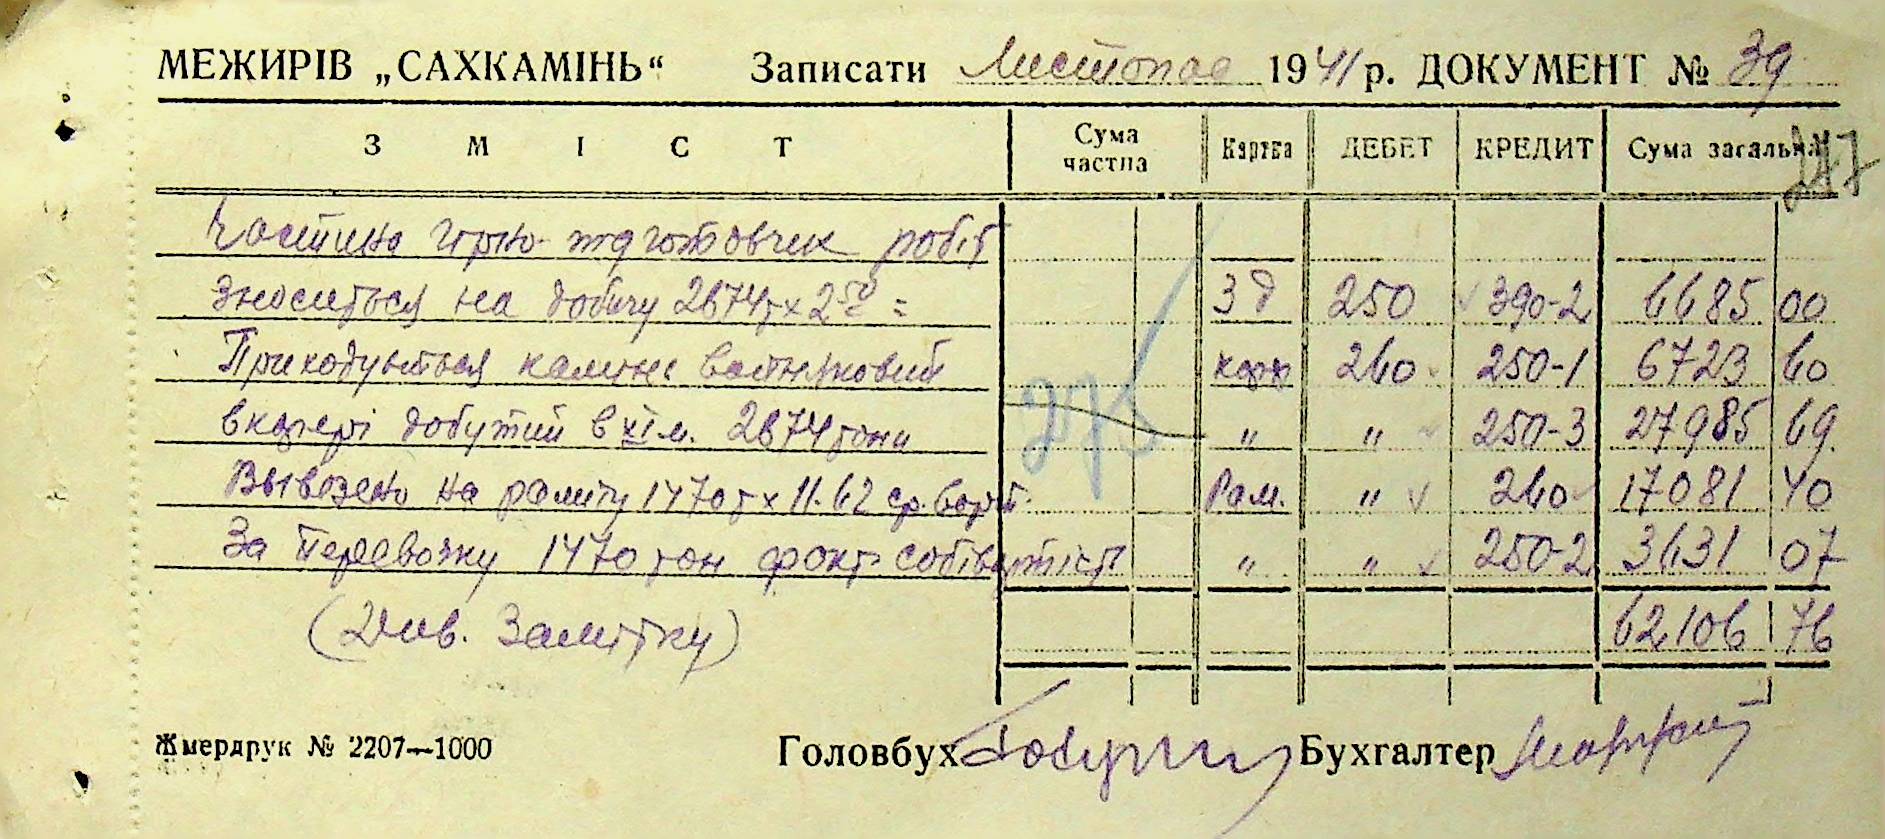 МЕЖИРІВ „САХКАМІНЬ“ Записати Листопад 1941 р. ДОКУМЕНТ № 39
247
ЗМІСТ Сума частна Картка ДЕБЕТ КРЕДИТ Сума загальна
Частина гірно-підготовчих робіт
зноситься на добичу 2674т x 2 50 = 3 д 250 390-2 6685 00
Приходується камінь вапняковий кар 260 250-1 6723 60
в карєрі добутий в XI м. 2674 тони " " 250-3 27985 69
275
Вивезено на рампу 1470 т x 11.62 ср. варт. Рам. " 260 17081 40
За перевозку 1470 тон факт собівартість " " 250-2 3631 07
(Див. Замітку) 62106 76
Жмердрук № 2207—1000 Головбух Бухгалтер